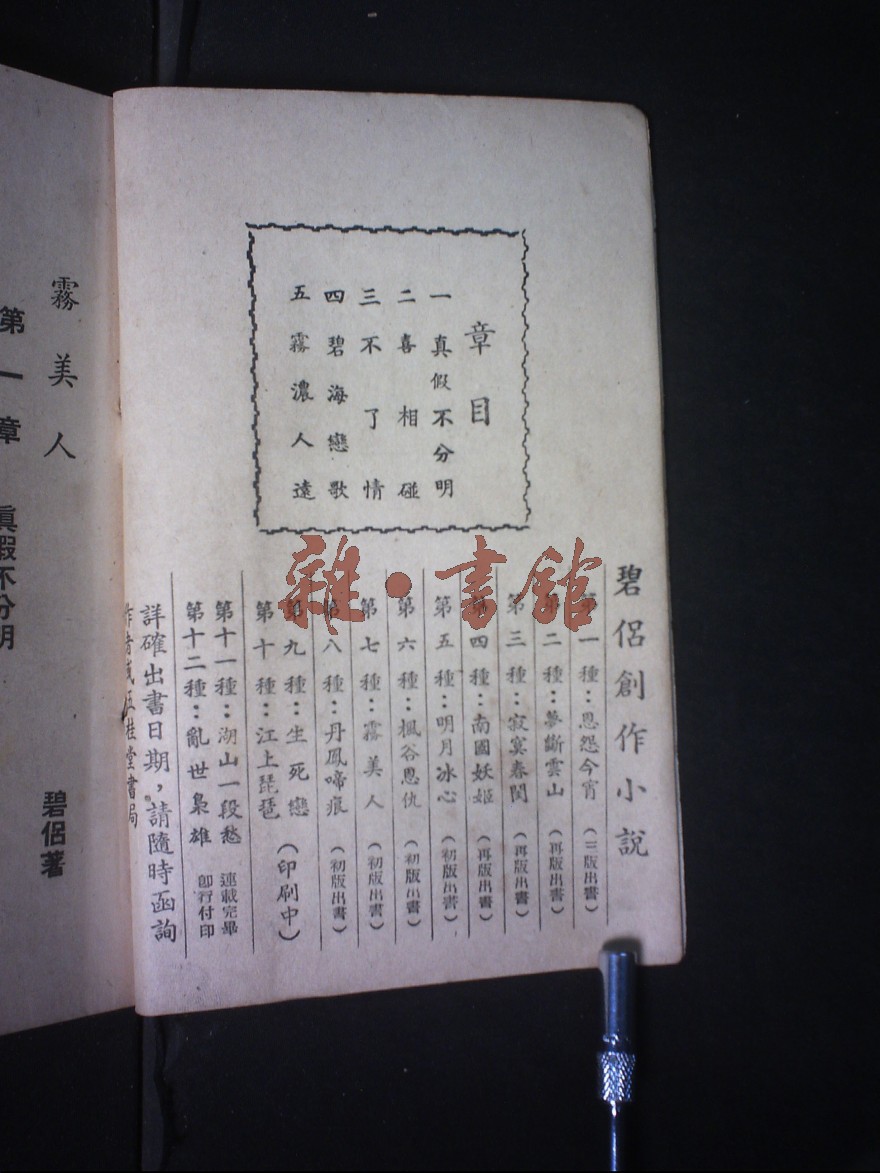 章目
一真假不分明
二喜相碰
三不了情
四碧海戀歌
五霧濃人遠
碧侶創作小說
第一種：恩怨今宵（三版出書）
第二種：夢斷雲山（再版出書）
第三種：寂寞春閨（再版出書）
第四種：南國妖姬（再版出書）
第五種：明月冰心（初版出書）
第六種：楓谷恩仇（初版出書）
第七種：霧美人（初版出書）
第八種：丹鳳啼痕（初版出書）
第九種：生死戀（印刷中）
第十種：江上琵琶
第十一種：湖山一段愁 連載完畢
第十二種：亂世梟雄 即行付印
詳確出書日期，請隨時函詢
作者或五桂堂書局
雜·書館
霧美人
碧侶著
第一章 真假不分明